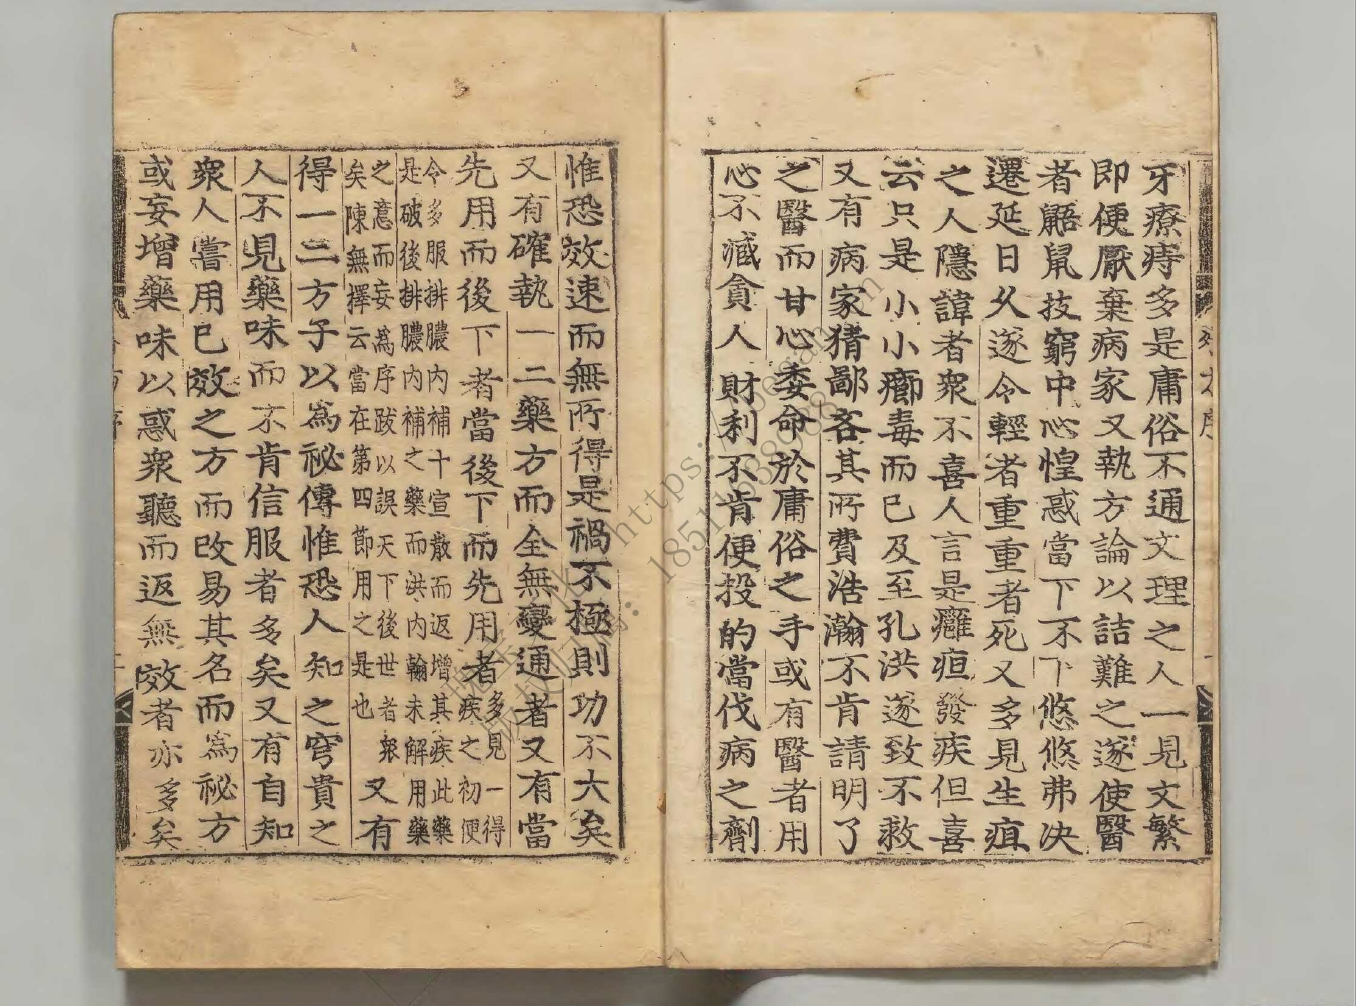 牙療痔多是庸俗不通文理之人一見文繁
即便厭棄病家又執方論以詰難之遂使醫
者鼯鼠技窮中心惶惑當下不下悠悠弗决
遷延日久遂令輕者重重者死又多見生疽
之人隱諱者衆不喜人言是癰疽發疾但喜
云只是小小癤毒而已及至孔洪遂致不救
又有病家猜鄙吝其所費浩瀚不肯請明了
之醫而甘心委命於庸俗之手或有醫者用
心不臧貪人財利不肯便投的當伐病之劑
惟恐效速而無所得是禍不極則功不大矣
又有確執一二藥方而全無變通者又有當
先用而後下者當後下而先用者多見一得疾之初便
令多服排膿内補十宣散而返增其疾此藥
是破後排膿内補之藥而洪内翰未解用藥
之意而妄為序跋以誤天下後世者衆
矣陳無擇云當在第四節用之是也又有
得一二方子以為祕傳惟恐人知之穹貴之
人不見藥味而不肯信服者多矣又有自知
衆人嘗用已效之方而改易其名而為祕方
或妄增藥味以惑衆聽而返無效者亦多矣